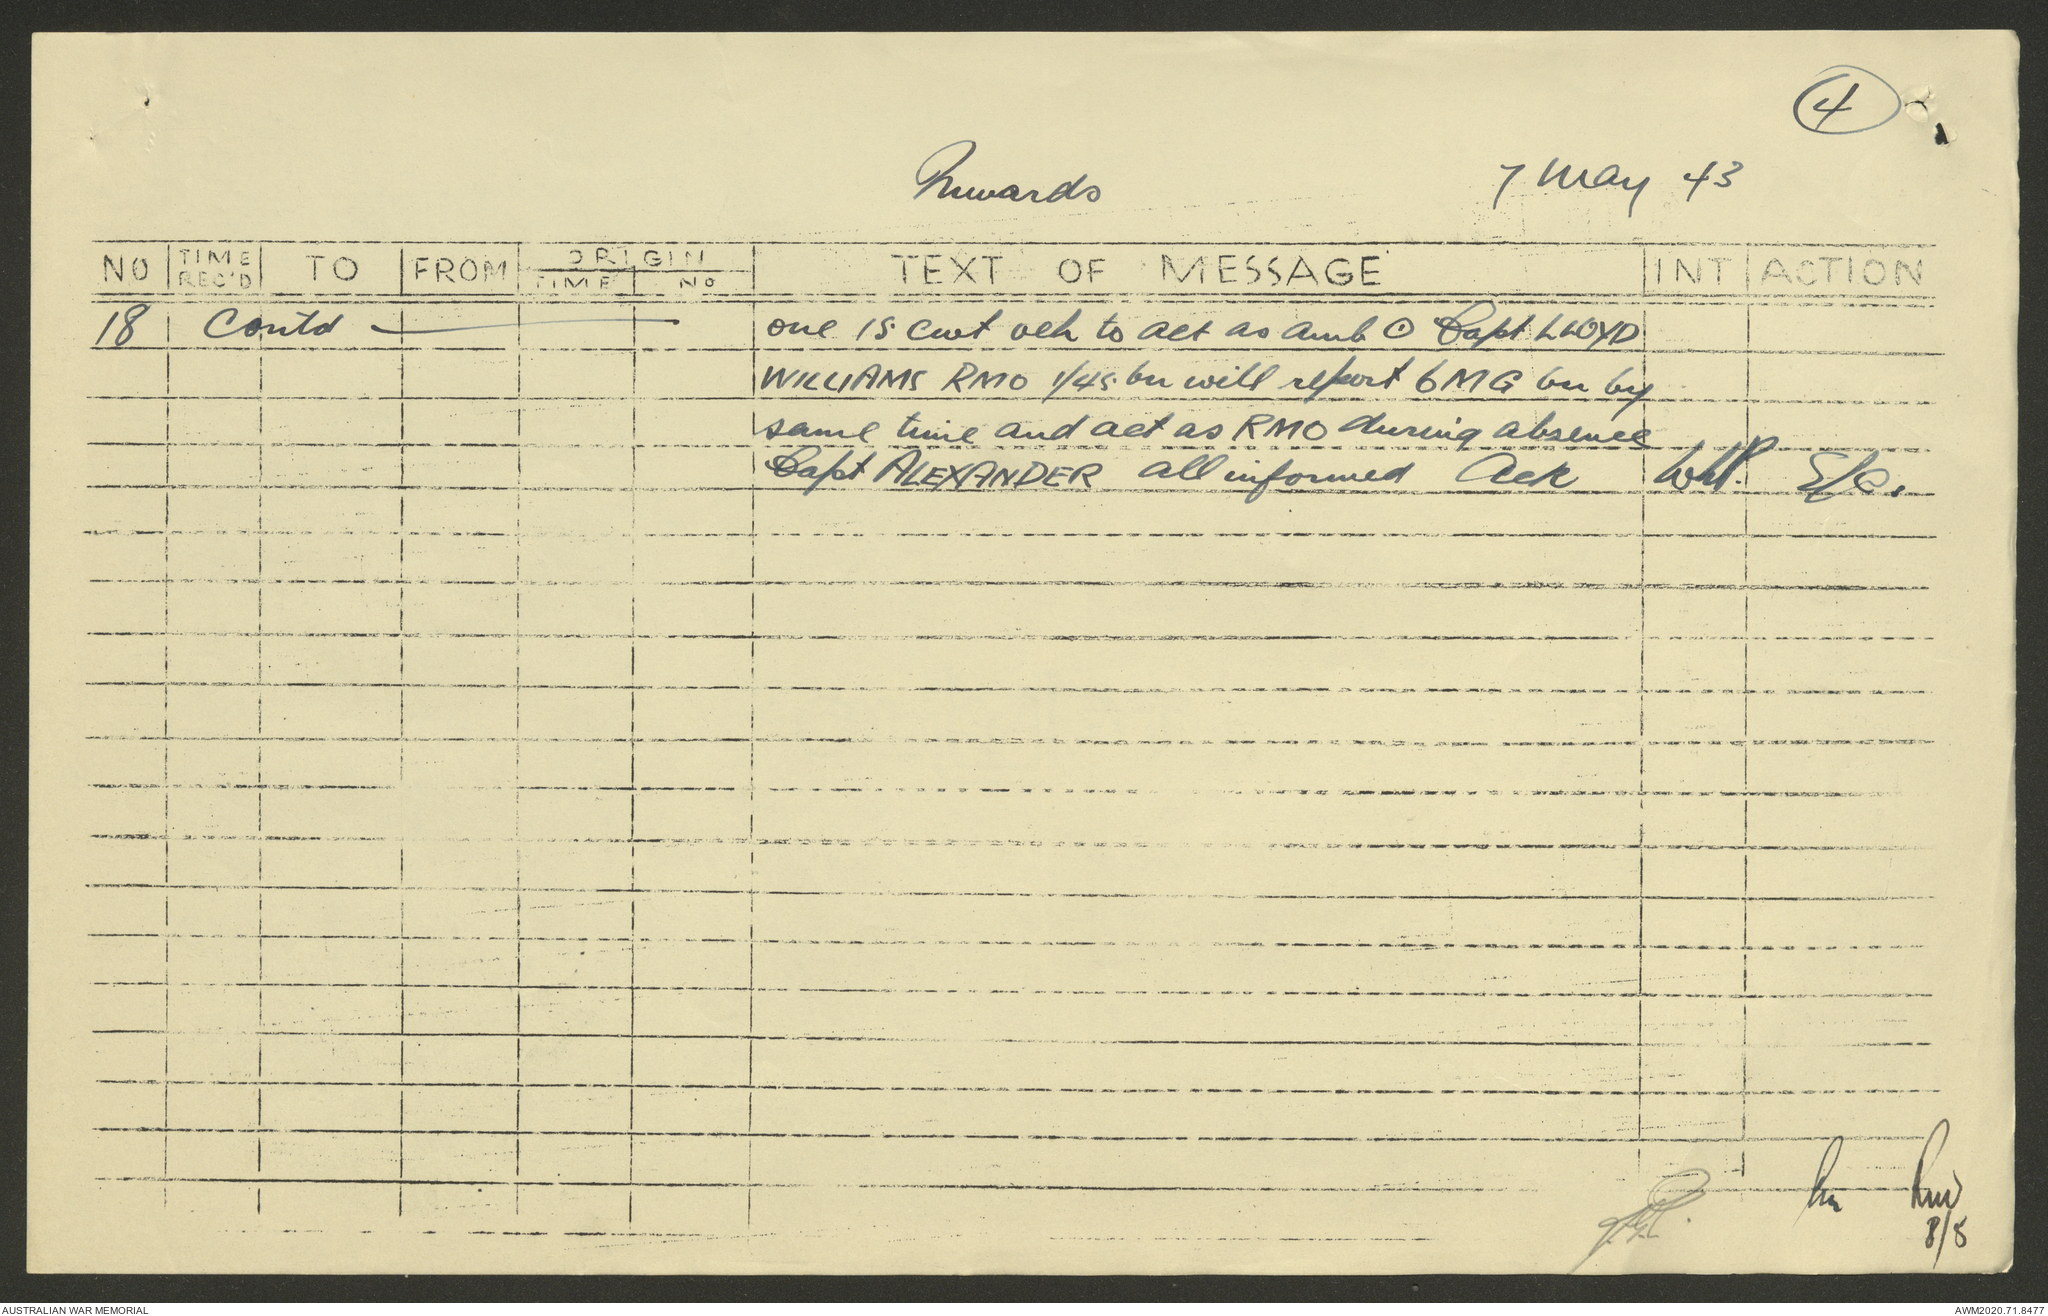 4
Inwards 7 May 43
NO TIME REC'D TO FROM ORIGIN TIME NO TEXT OF MESSAGE INT ACTION
18 Contd one 15 cwt veh to act as amb ⊙ Capt LLOYD
WILLIAMS RMO 1/45 bn will report 6 MG bn by
same time and act as RMO during absence
Capt ALEXANDER all informed Ack
8/5
AUSTRALIAN WAR MEMORIAL AWM2020.71.8477